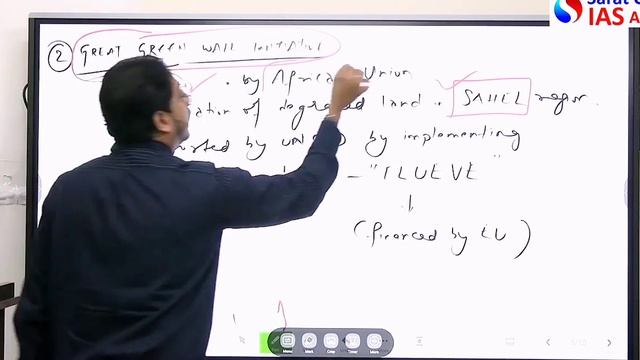 Sarat C
IAS A
② GREAT GREEN WALL INITIATIVE
. by African Union
ation of degraded land . SAHEL region.
orted by UNCCD by implementing
- "FLUEVE"
(financed by EU)
Menu Mark Crop Clear Note Exit